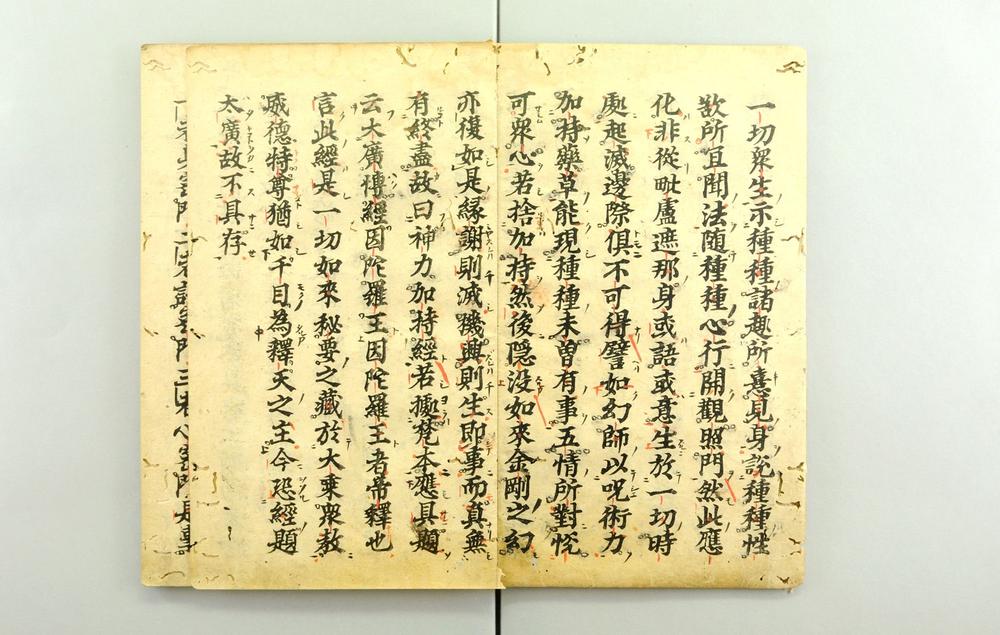 一切衆生示種種諸趣所憙見身説種種性
欲所宜聞法隨種種心行開觀照門然此應
化非從毗盧遮那身或語或意生於一切時
處起滅邊際俱不可得譬如幻師以呪術力
加持藥草能現種種未曽有事五情所對恱
可衆心若捨加持然後隱没如來金剛之幻
亦復如是縁謝則滅機興則生即事而真無
有終盡故曰神力加持經若據梵本應具題
云大廣博經因陀羅王因陀羅王者帝釋也
言此經是一切如來秘要之藏於大乘衆教
威德特尊猶如千目為釋天之主今恐經題
太廣故不具存